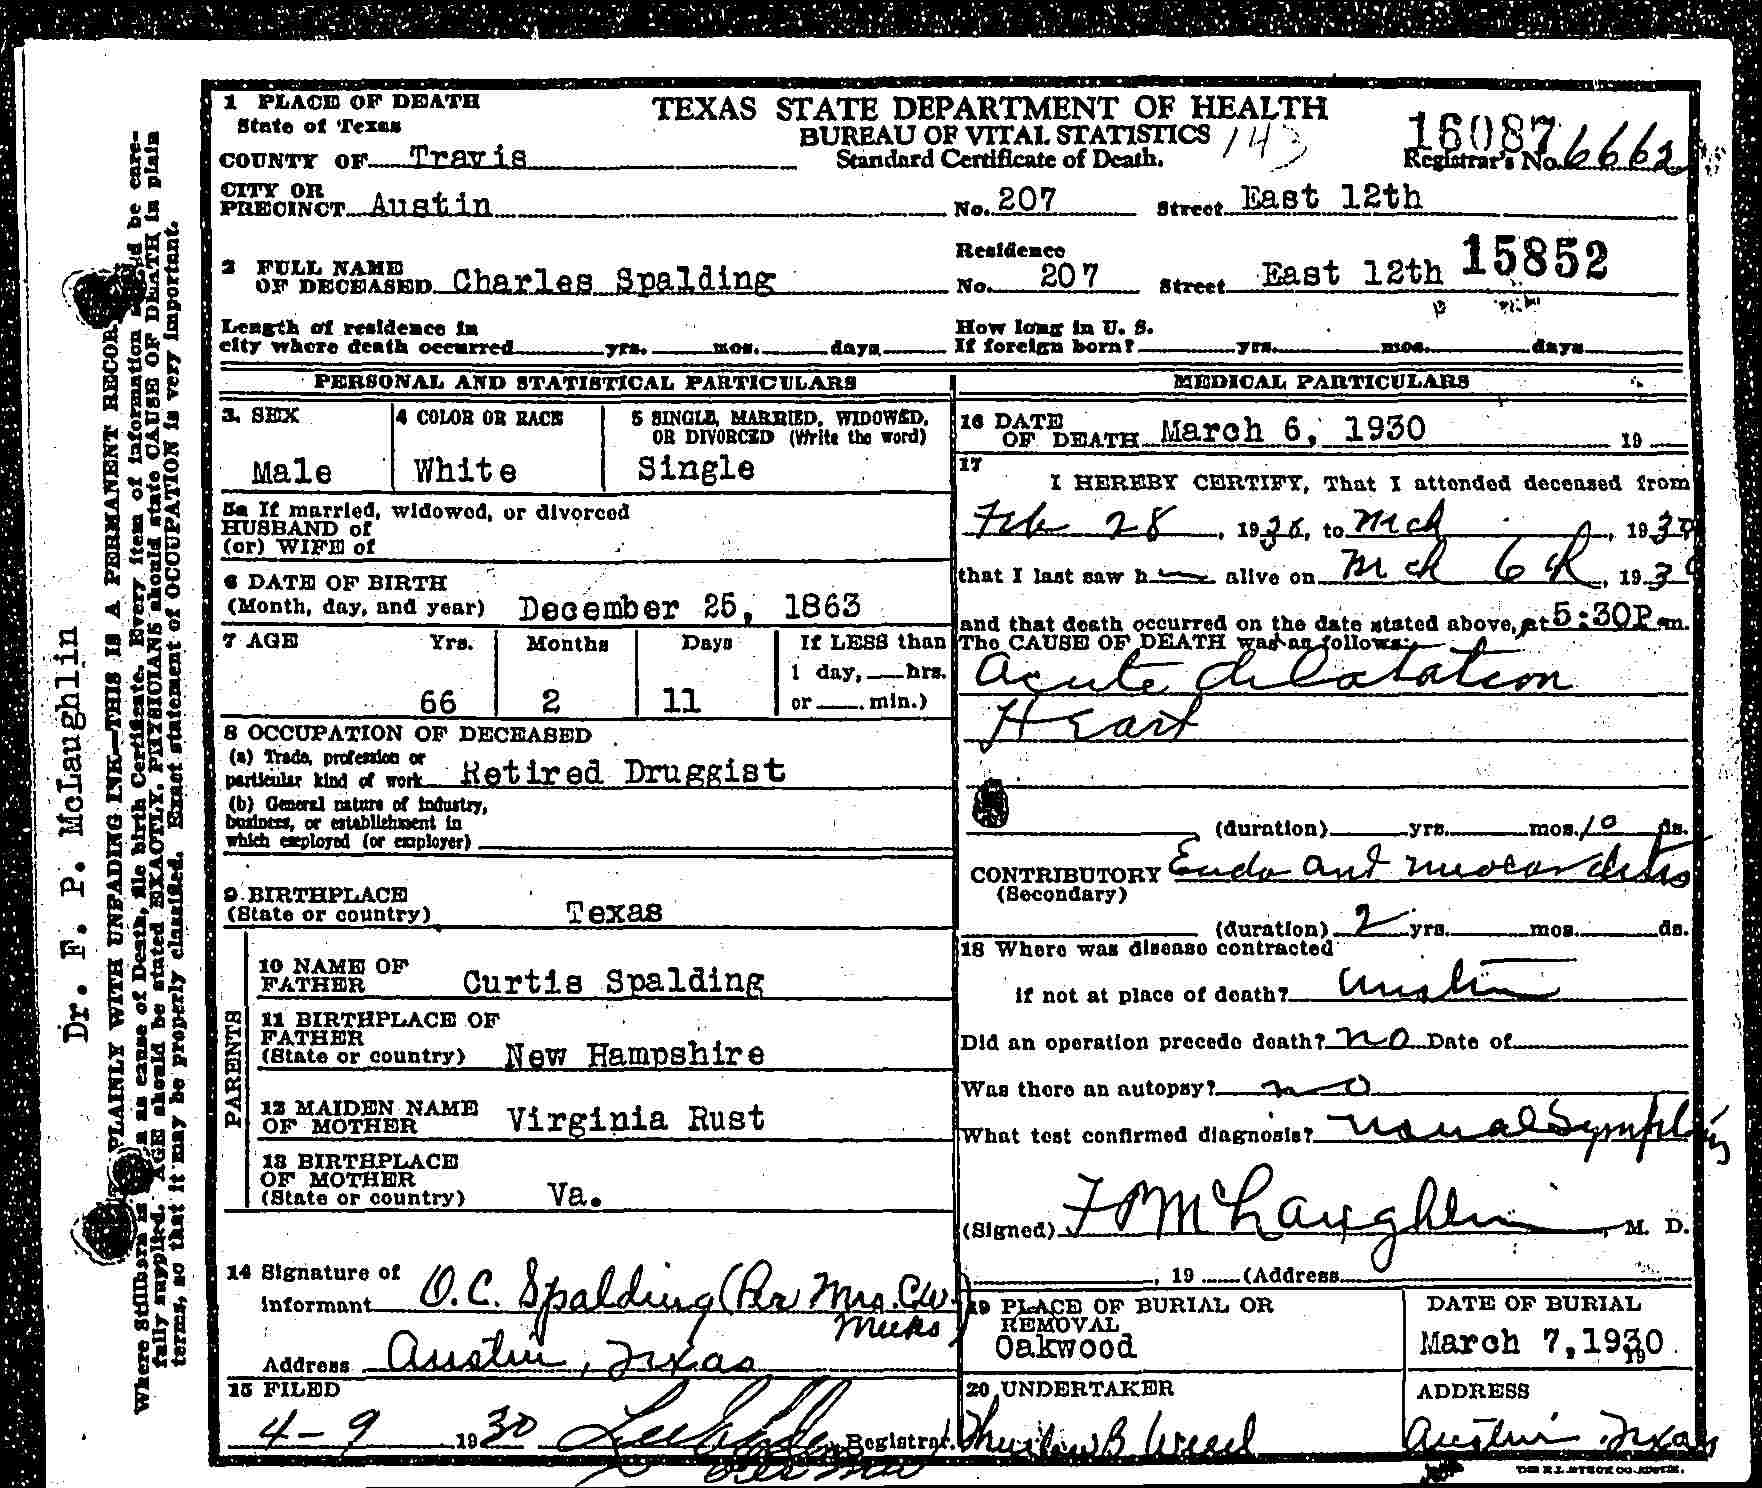 Dr. F. P. McLaughlin
PLAINLY WITH UNFADING INK—THIS IS A PERMANENT RECOR
Where Stillborn is as cause of Death, file birth Certificate. Every item of information be care-
fully supplied. AGE should be stated EXACTLY. PHYSICIANS should state CAUSE OF DEATH in plain
terms, so that it may be properly classified. Exact statement of OCCUPATION is very important.
1 PLACE OF DEATH
State of Texas
TEXAS STATE DEPARTMENT OF HEALTH
BUREAU OF VITAL STATISTICS 143
Standard Certificate of Death.
16087
Registrar's No. 6662
COUNTY OF Travis
CITY OR
PRECINCT Austin No. 207 Street East 12th
2 FULL NAME
OF DECEASED Charles Spalding
Residence
No. 207 Street East 12th 15852
Length of residence in
city where death occurred yrs. mos. days
How long in U. S.
If foreign born? yrs. mos. days
PERSONAL AND STATISTICAL PARTICULARS
3. SEX
Male
4 COLOR OR RACE
White
5 SINGLE, MARRIED, WIDOWED,
OR DIVORCED (Write the word)
Single
5a If married, widowed, or divorced
HUSBAND of
(or) WIFE of
6 DATE OF BIRTH
(Month, day, and year) December 25, 1863
7 AGE Yrs. Months Days If LESS than
1 day, hrs.
66 2 11 or min.)
8 OCCUPATION OF DECEASED
(a) Trade, profession or
particular kind of work Retired Druggist
(b) General nature of industry,
business, or establishment in
which employed (or employer)
9 BIRTHPLACE
(State or country) Texas
PARENTS
10 NAME OF
FATHER Curtis Spalding
11 BIRTHPLACE OF
FATHER
(State or country) New Hampshire
12 MAIDEN NAME
OF MOTHER Virginia Rust
13 BIRTHPLACE
OF MOTHER
(State or country) Va.
14 Signature of
Informant O. C. Spalding (Per Mrs. C.W.
Meeks)
Address Austin, Texas
15 FILED
4-9 1930 Registrar.
MEDICAL PARTICULARS
16 DATE
OF DEATH March 6, 1930 19
17
I HEREBY CERTIFY, That I attended deceased from
Feb 28, 1930, to Mch, 1930
that I last saw h alive on Mch 6th, 1930
and that death occurred on the date stated above, at 5:30P m.
The CAUSE OF DEATH was as follows:
Acute dilatation
Heart
(duration) yrs. mos. 10 ds.
CONTRIBUTORY Endo and myocarditis
(Secondary)
(duration) 2 yrs. mos. ds.
18 Where was disease contracted
if not at place of death? Austin
Did an operation precede death? no Date of
Was there an autopsy? no
What test confirmed diagnosis? usual Symptoms
(Signed) F P McLaughlin, M. D.
, 19 (Address
19 PLACE OF BURIAL OR
REMOVAL
Oakwood
DATE OF BURIAL
March 7, 1930
19
20 UNDERTAKER
Thurlow B Weed
ADDRESS
Austin Texas